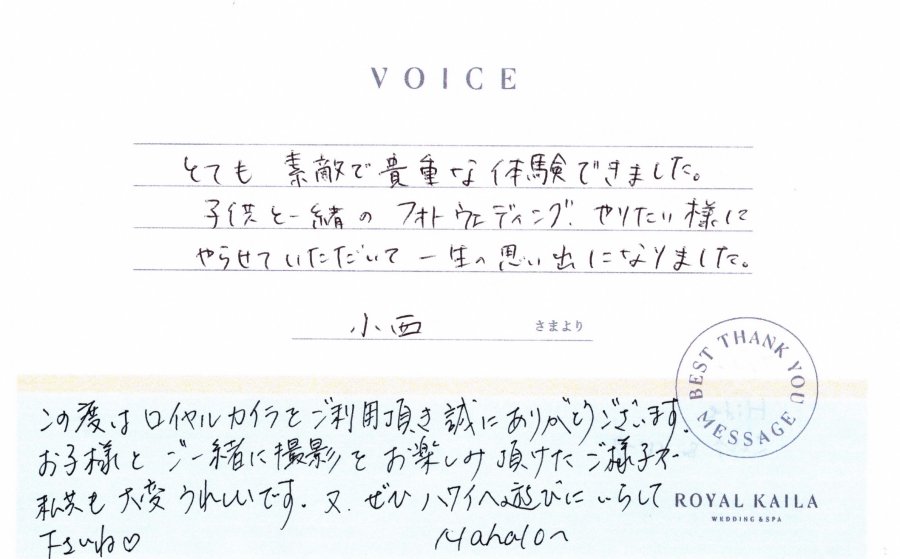 VOICE
とても 素敵で貴重な体験できました。
子供と一緒の フォトウェディング. やりたい様に
やらせていただいて 一生の思い出になりました。
小西 さまより
BEST THANK YOU MESSAGE
この度はロイヤルカイラをご利用頂き誠にありがとうございます.
お子様と ご一緒に撮影を お楽しみ頂けた ご様子で
私共も 大変 うれしいです. 又 ぜひ ハワイへ遊びに いらして
下さいね♡ Mahalo
ROYAL KAILA
WEDDING & SPA